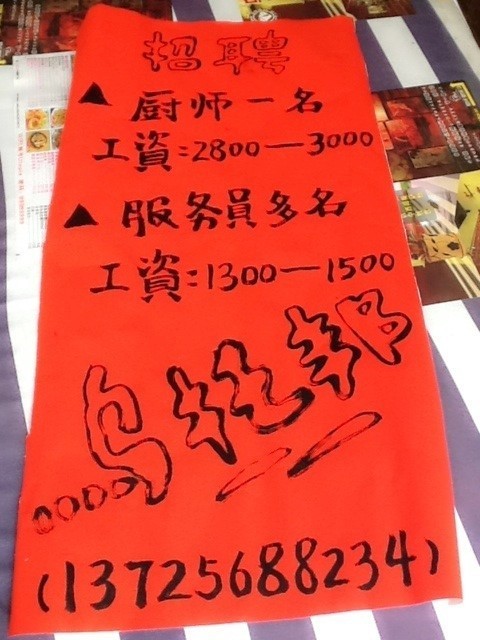 招聘
▲厨师一名
工資:2800—3000
▲服务員多名
工資:1300—1500
(13725688234)